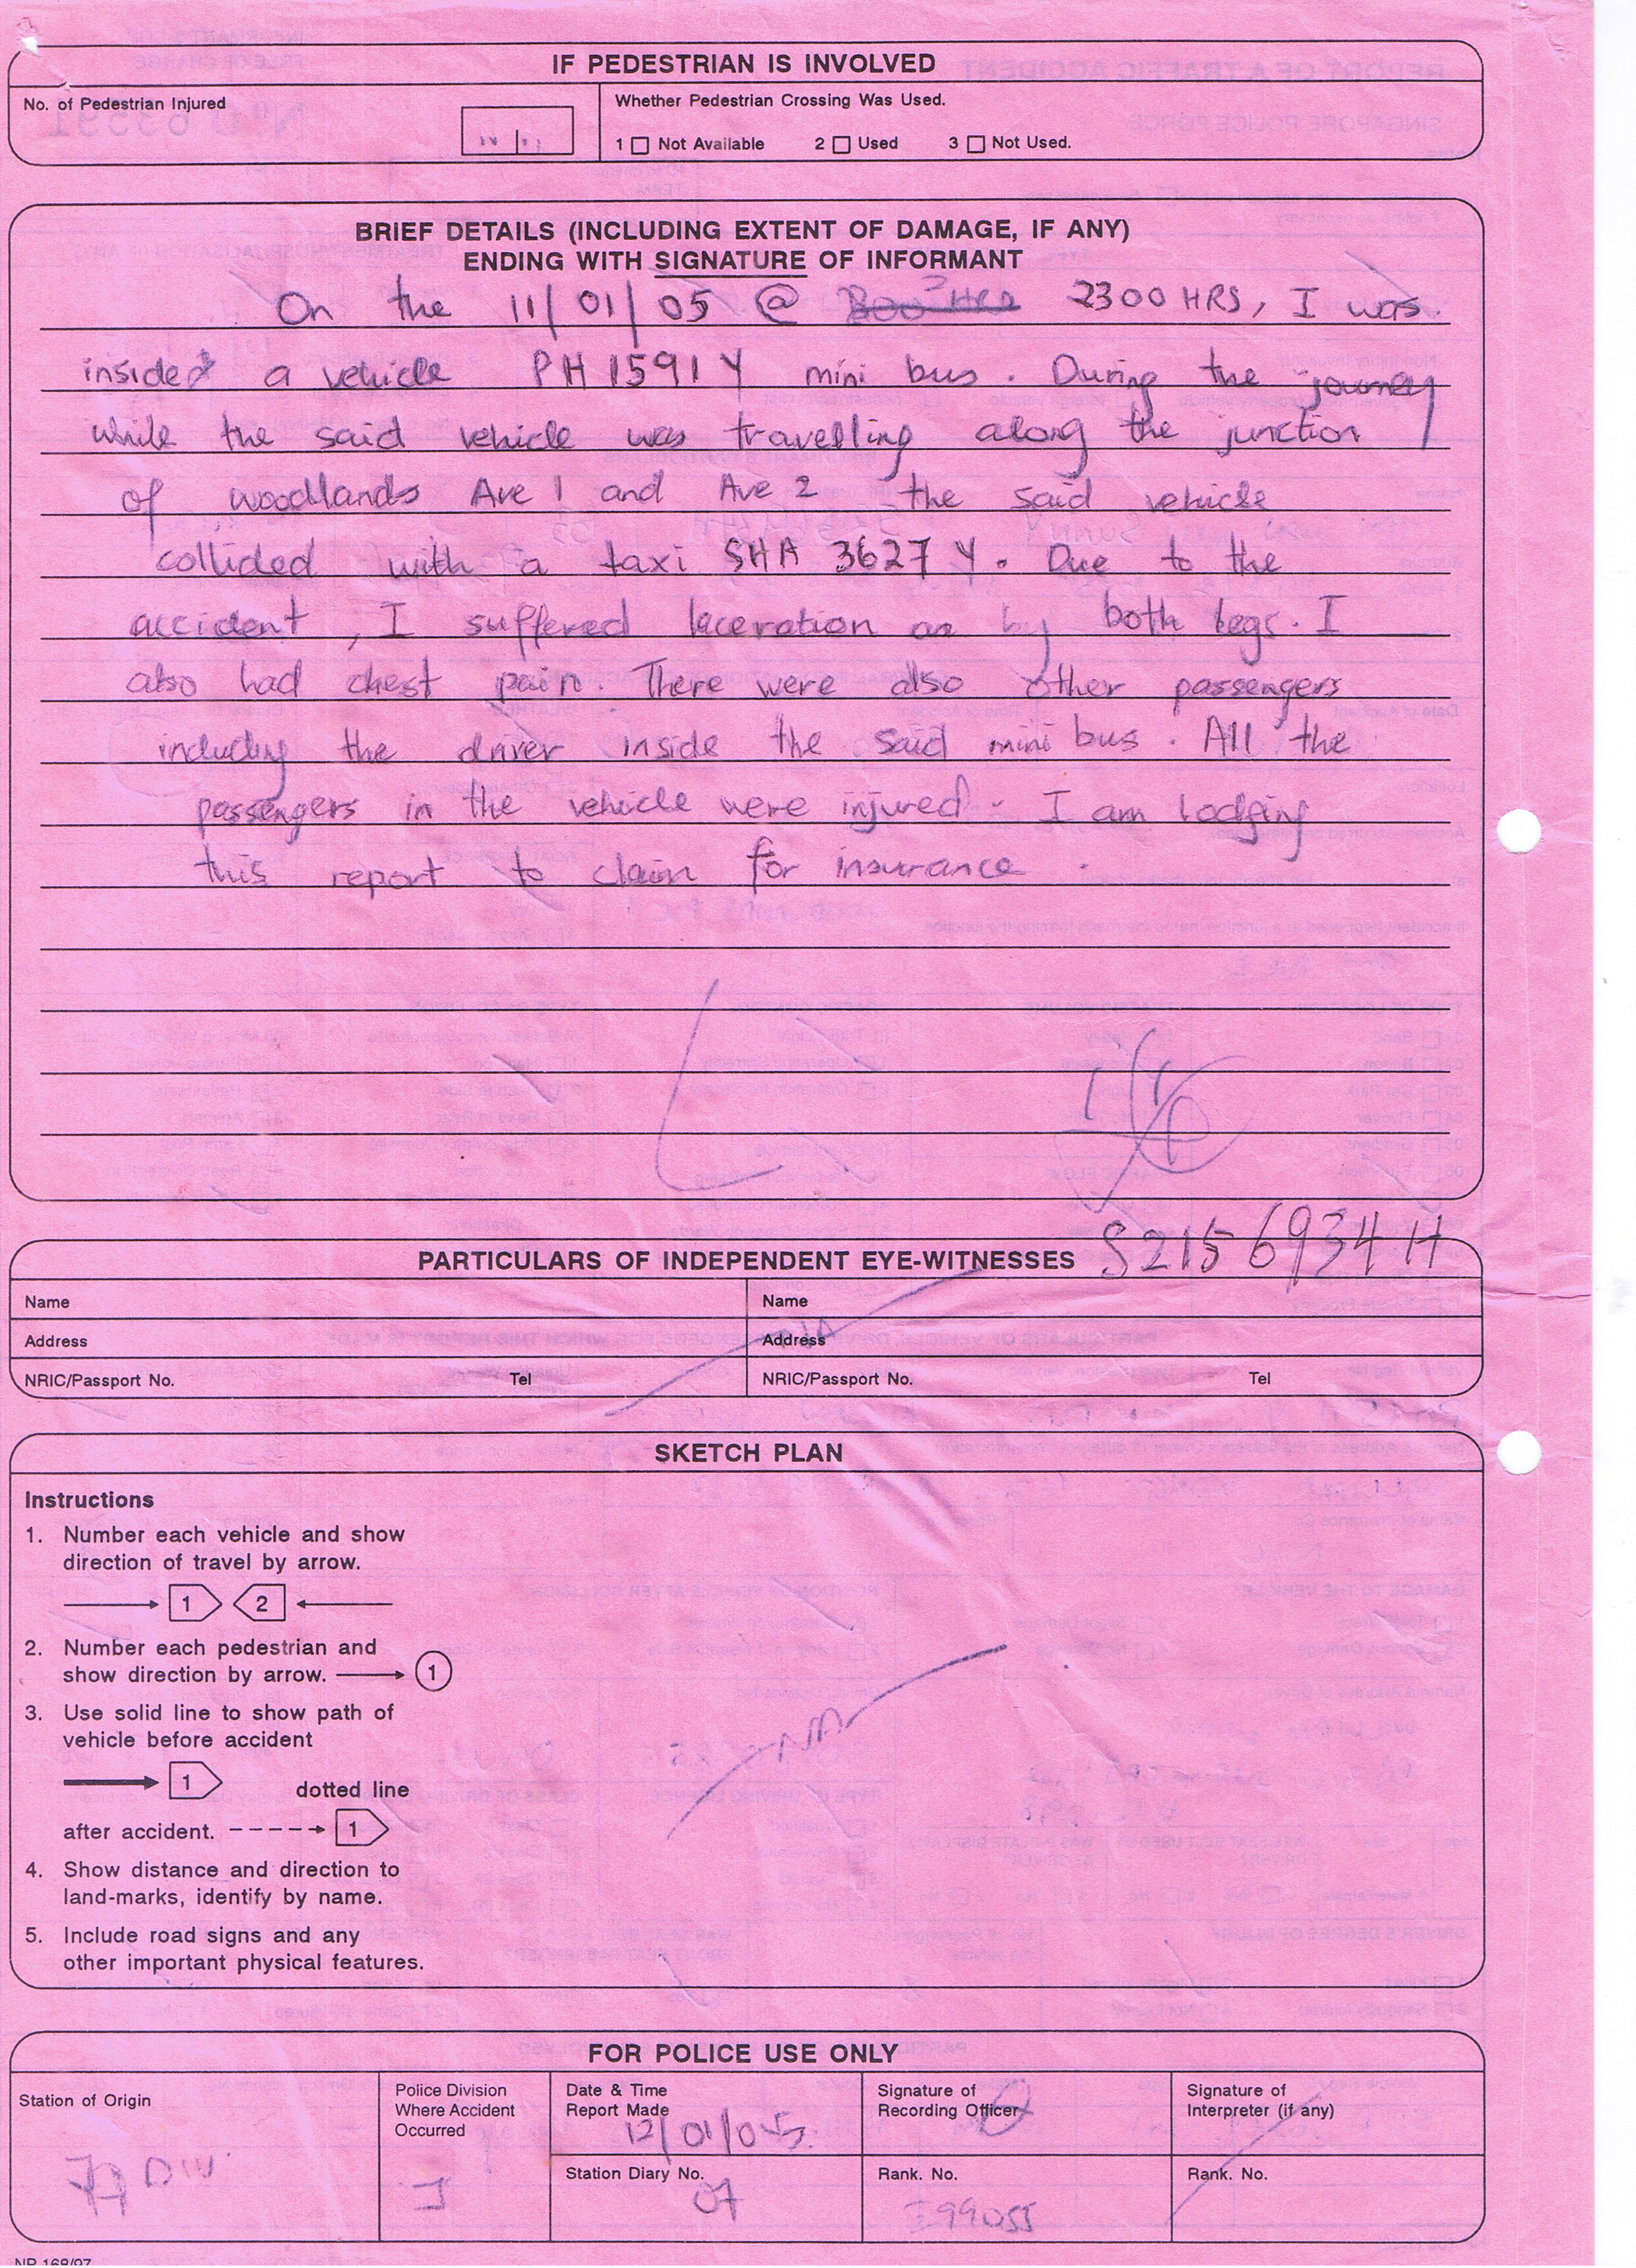 IF PEDESTRIAN IS INVOLVED
No. of Pedestrian Injured
Whether Pedestrian Crossing Was Used.
1 Not Available 2 Used 3 Not Used.
BRIEF DETAILS (INCLUDING EXTENT OF DAMAGE, IF ANY)
ENDING WITH SIGNATURE OF INFORMANT
On the 11/01/05 @ 2300 HRS, I was
insided a vehicle PH 1591 Y mini bus. During the journey
while the said vehicle was travelling along the junction
of woodlands Ave 1 and Ave 2 the said vehicle
collided with a taxi SHA 3627 Y. Due to the
accident, I suffered laceration on by both legs. I
also had chest pain. There were also other passengers
including the driver inside the said mini bus. All the
passengers in the vehicle were injured. I am lodging
this report to claim for insurance.
S2156934H
PARTICULARS OF INDEPENDENT EYE-WITNESSES
Name Name
Address Address
NRIC/Passport No. Tel NRIC/Passport No. Tel
SKETCH PLAN
Instructions
1. Number each vehicle and show
direction of travel by arrow.
1 2
2. Number each pedestrian and
show direction by arrow. 1
3. Use solid line to show path of
vehicle before accident
1 dotted line
after accident. 1
4. Show distance and direction to
land-marks, identify by name.
5. Include road signs and any
other important physical features.
NA
FOR POLICE USE ONLY
Station of Origin
Police Division
Where Accident
Occurred
J
Date & Time
Report Made
12/01/05.
Signature of
Recording Officer
Signature of
Interpreter (if any)
Station Diary No.
07
Rank. No.
Rank. No.
NP 168/97